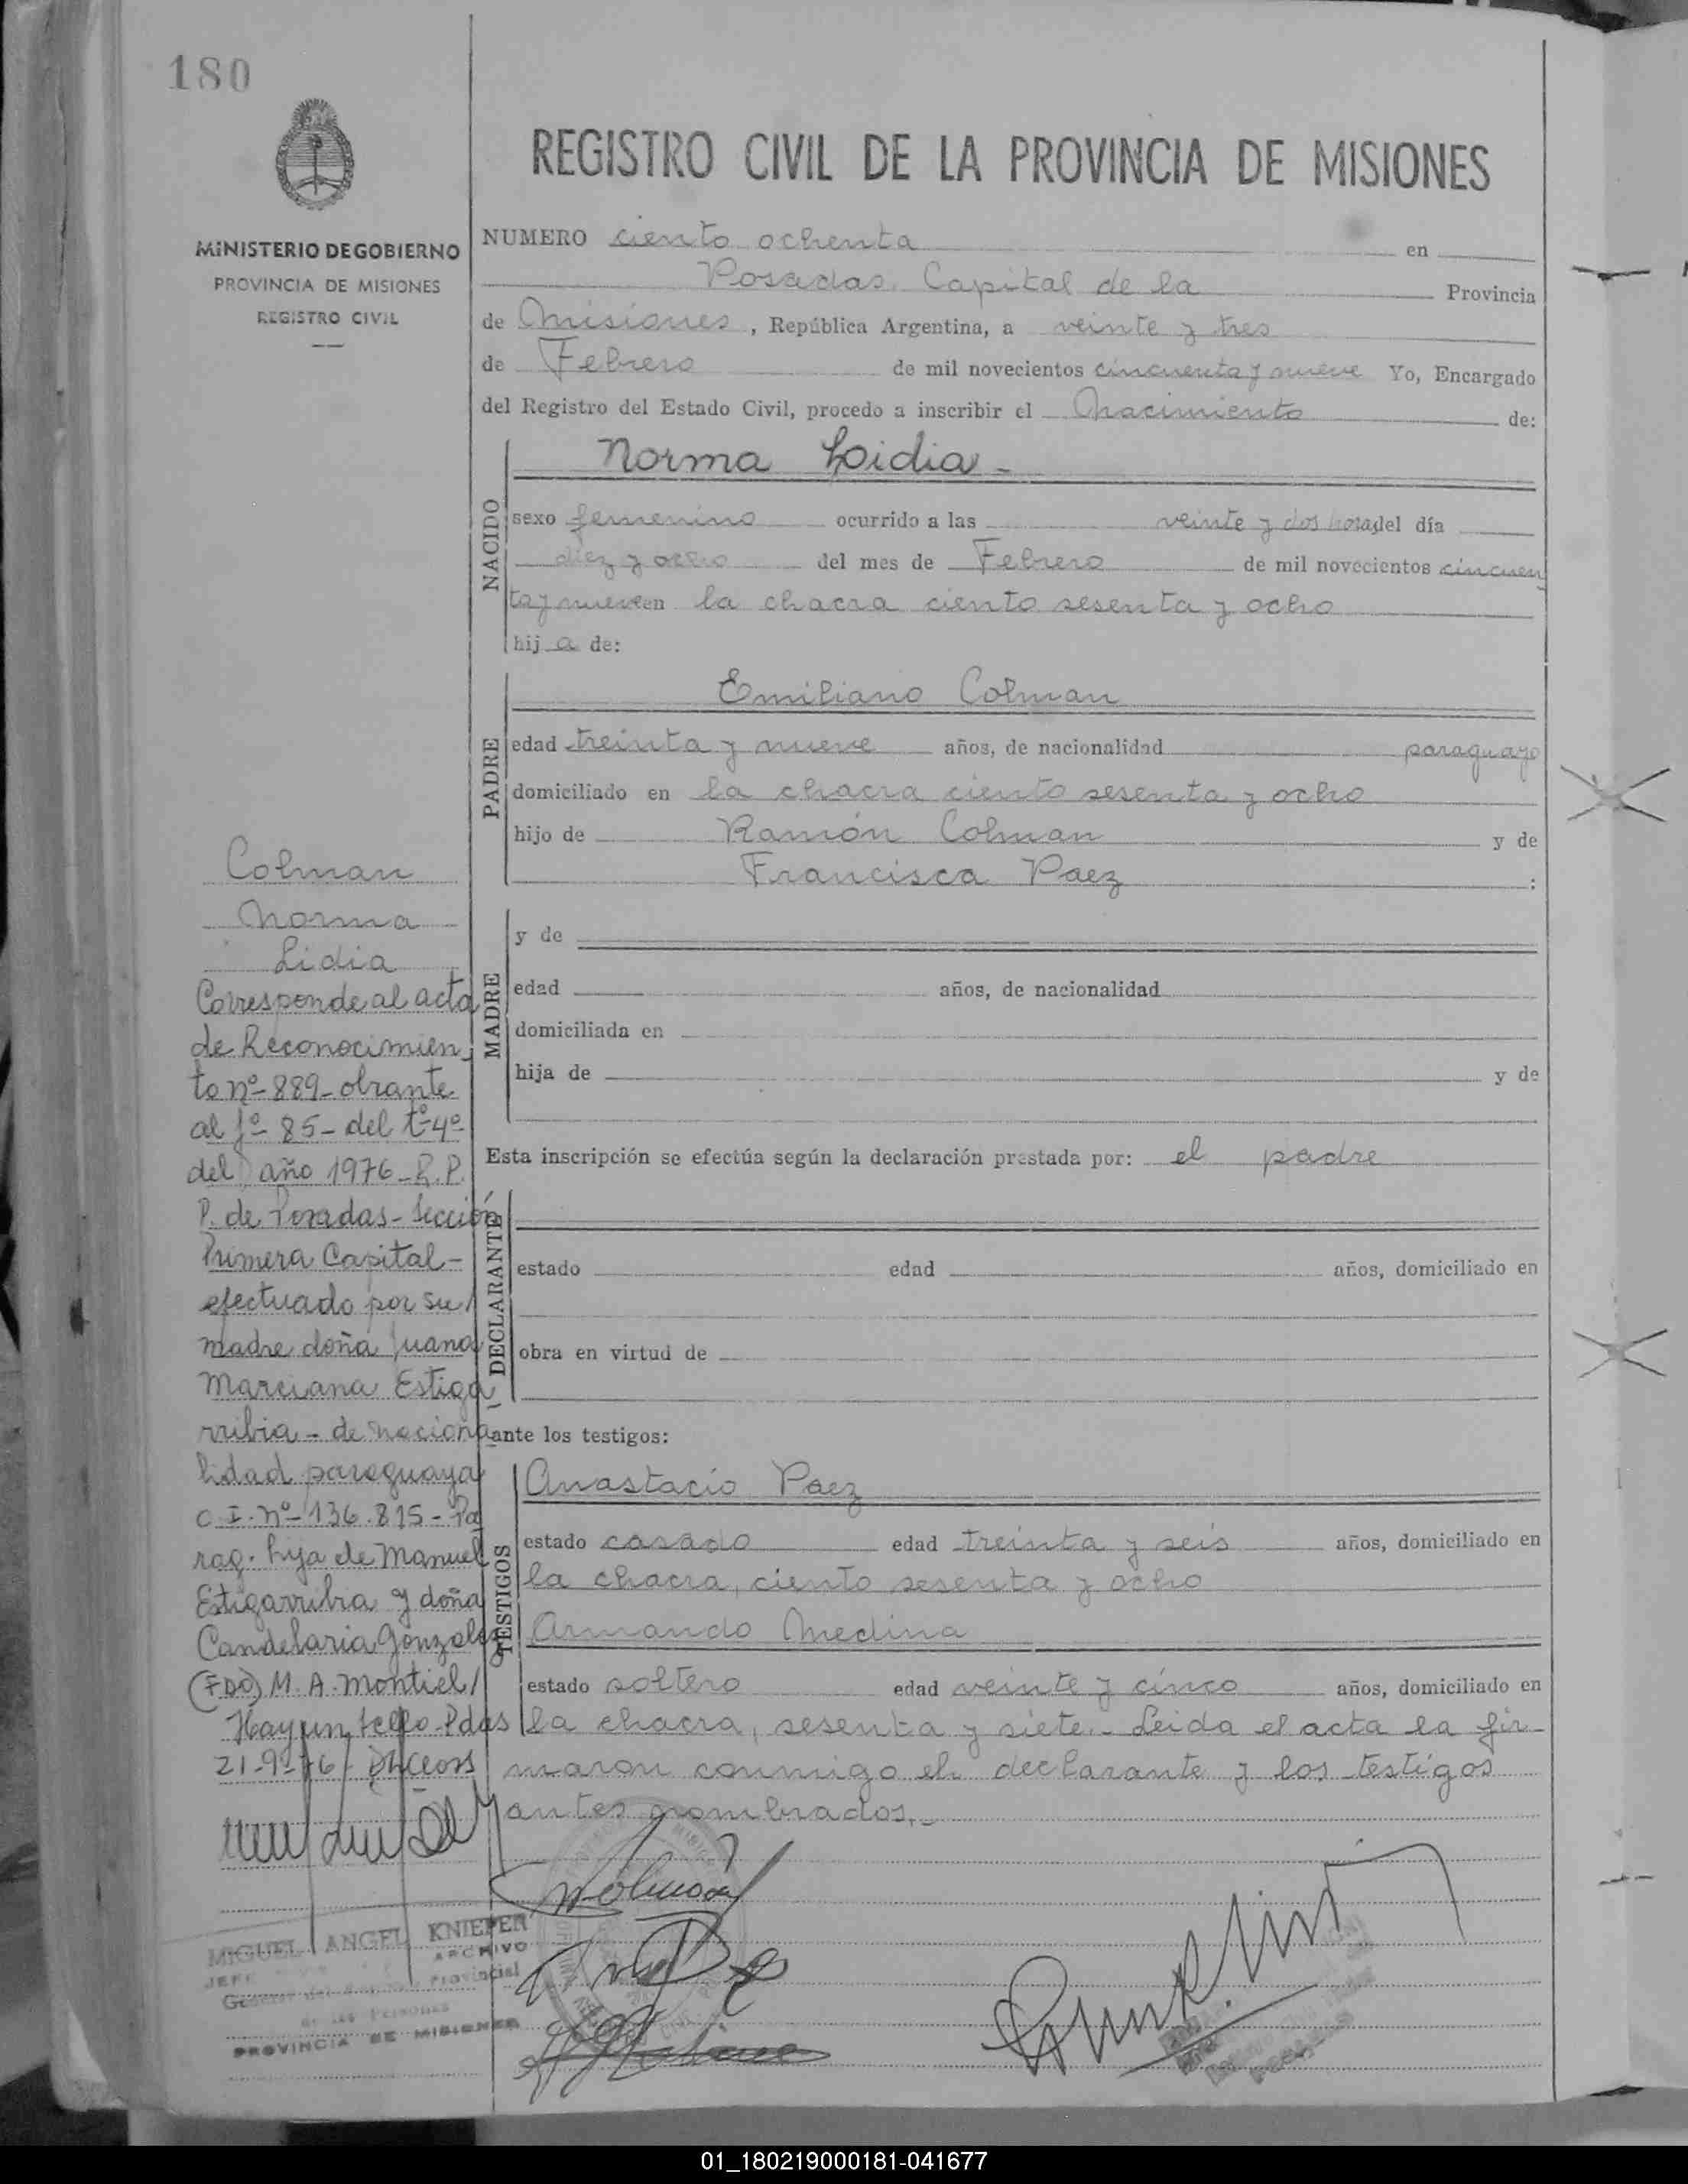 180
MINISTERIO DE GOBIERNO
PROVINCIA DE MISIONES
REGISTRO CIVIL
REGISTRO CIVIL DE LA PROVINCIA DE MISIONES
NUMERO ciento ochenta en
Posadas, Capital de la Provincia
de Misiones, República Argentina, a veinte y tres
de Febrero de mil novecientos cincuenta y nueve Yo, Encargado
del Registro del Estado Civil, procedo a inscribir el Nacimiento de:
NACIDO
Norma Lidia -
sexo femenino ocurrido a las veinte y dos horas del día
diez y ocho del mes de Febrero de mil novecientos cincuen
ta y nueve en la chacra ciento sesenta y ocho
hija de:
PADRE
Emiliano Colman
edad treinta y nueve años, de nacionalidad paraguayo
domiciliado en la chacra ciento sesenta y ocho
hijo de Ramón Colman y de
Francisca Paez :
MADRE
y de
edad años, de nacionalidad
domiciliada en
hija de y de
Esta inscripción se efectúa según la declaración prestada por: el padre
DECLARANTE
estado edad años, domiciliado en
obra en virtud de
ante los testigos:
TESTIGOS
Anastacio Paez
estado casado edad treinta y seis años, domiciliado en
la chacra, ciento sesenta y ocho
Armando Medina
estado soltero edad veinte y cinco años, domiciliado en
la chacra, sesenta y siete.- Leida el acta la fir-
maron conmigo el declarante y los testigos
antes nombrados.-
Colman
Norma
Lidia
Corresponde al acta
de Reconocimien
to nº- 889- obrante
al fº- 85- del tº-4º
del año 1976- R.P.
P. de Posadas- Sección
Primera Capital-
efectuado por su
madre doña Juana
Marciana Estiga
rribia - de naciona
lidad paraguaya
C.I. nº- 136.815- Pa
rag. hija de Manuel
Estigarribia y doña
Candelaria Gonzalez
(FDO) M. A. Montiel/
Hay un sello- Pdas
21-9-76/
MIGUEL ANGEL KNIEPER
JEFE ARCHIVO
General del Provincial
de las Personas
PROVINCIA DE MISIONES
01_180219000181-041677